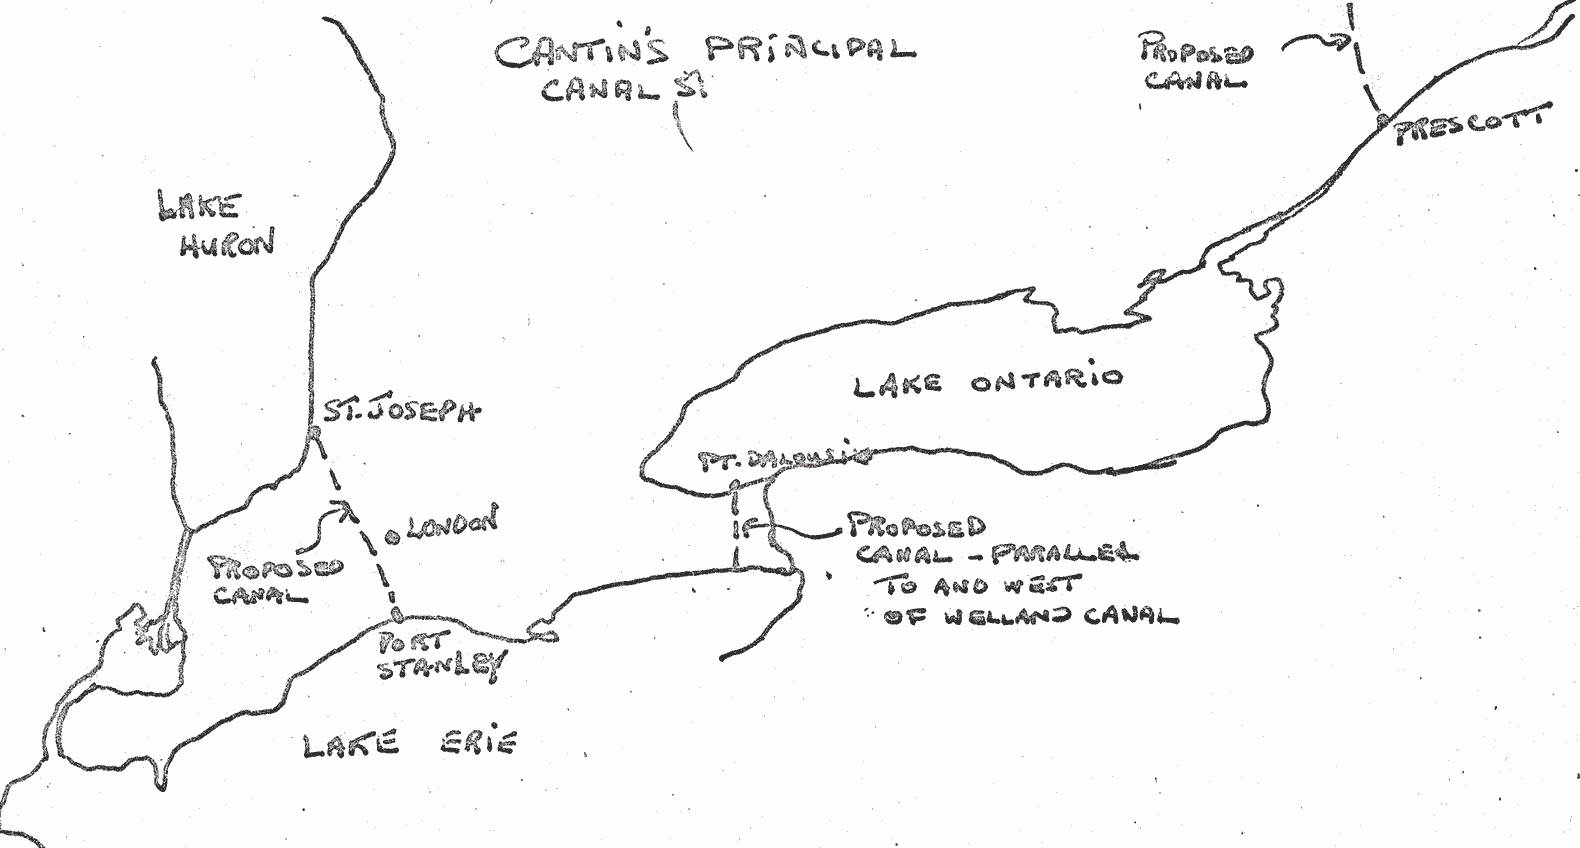 CANTIN'S PRINCIPAL
CANAL
PROPOSED
CANAL
PRESCOTT
LAKE
HURON
LAKE ONTARIO
ST. JOSEPH
PT. DALOUSIE
LONDON
PROPOSED
CANAL
PROPOSED
CANAL - PARALLEL
TO AND WEST
OF WELLAND CANAL
PORT
STANLEY
LAKE ERIE